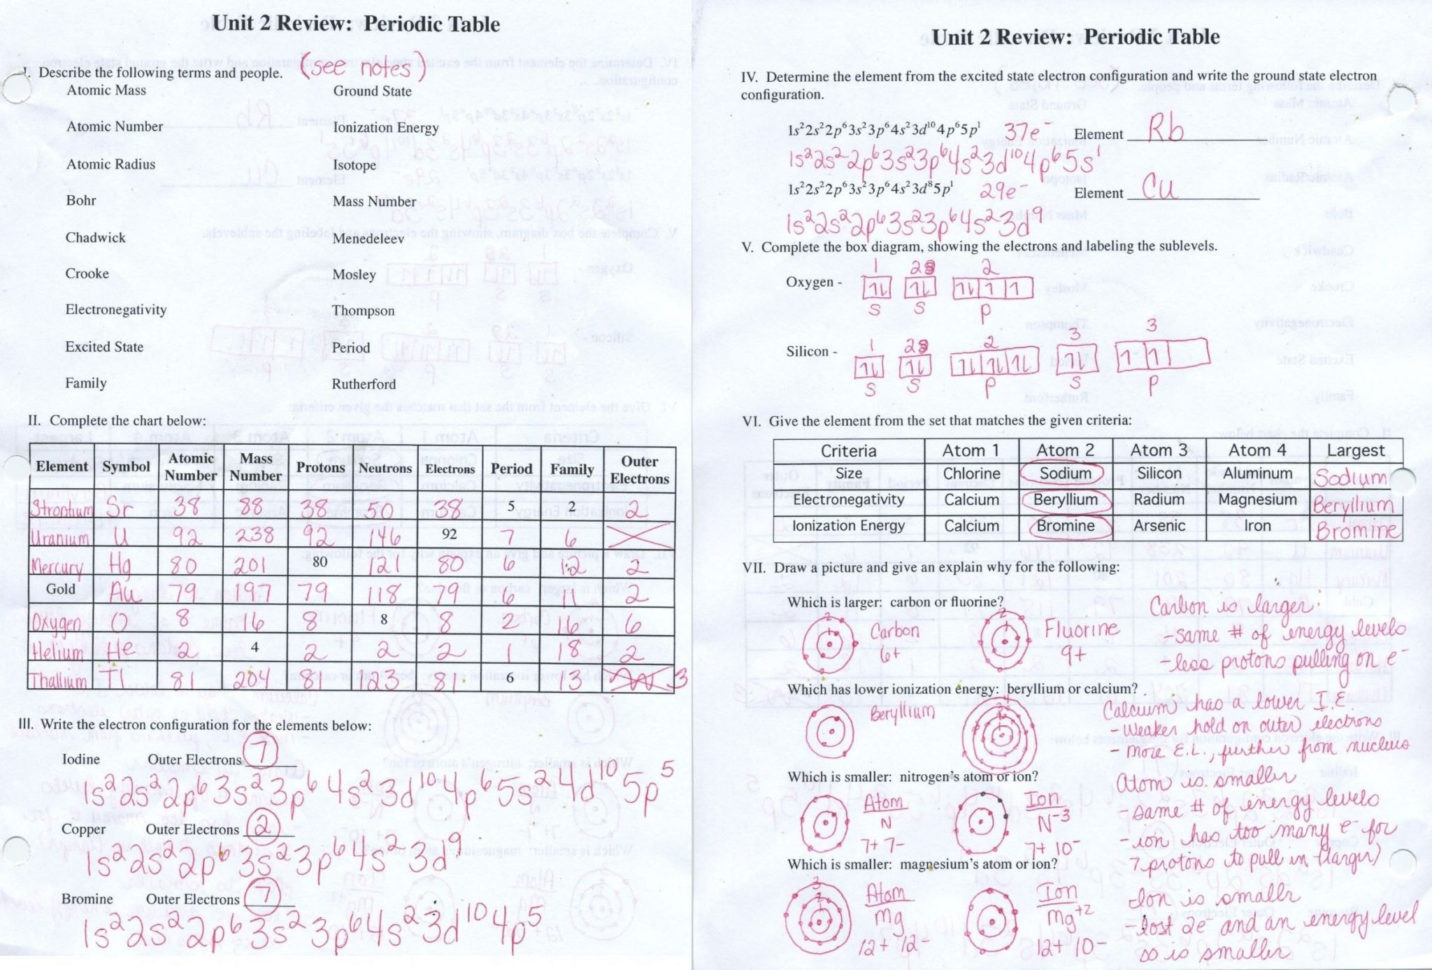 Unit 2 Review: Periodic Table
I. Describe the following terms and people. (see notes)
Atomic Mass Ground State
Atomic Number Ionization Energy
Atomic Radius Isotope
Bohr Mass Number
Chadwick Menedeleev
Crooke Mosley
Electronegativity Thompson
Excited State Period
Family Rutherford
II. Complete the chart below:
Element Symbol Atomic Number Mass Number Protons Neutrons Electrons Period Family Outer Electrons
Strontium Sr 38 88 38 50 38 5 2 2
Uranium U 92 238 92 146 92 7 6
Mercury Hg 80 201 80 121 80 6 12 2
Gold Au 79 197 79 118 79 6 11 2
Oxygen O 8 16 8 8 8 2 16 6
Helium He 2 4 2 2 2 1 18 2
Thallium Tl 81 204 81 123 81 6 13 3
III. Write the electron configuration for the elements below:
Iodine Outer Electrons 7
1s²2s²2p⁶3s²3p⁶4s²3d¹⁰4p⁶5s²4d¹⁰5p⁵
Copper Outer Electrons 2
1s²2s²2p⁶3s²3p⁶4s²3d⁹
Bromine Outer Electrons 7
1s²2s²2p⁶3s²3p⁶4s²3d¹⁰4p⁵
Unit 2 Review: Periodic Table
IV. Determine the element from the excited state electron configuration and write the ground state electron
configuration.
1s²2s²2p⁶3s²3p⁶4s²3d¹⁰4p⁶5p¹ 37e⁻ Element Rb
1s²2s²2p⁶3s²3p⁶4s²3d¹⁰4p⁶5s¹
1s²2s²2p⁶3s²3p⁶4s²3d⁸5p¹ 29e⁻ Element Cu
1s²2s²2p⁶3s²3p⁶4s²3d⁹
V. Complete the box diagram, showing the electrons and labeling the sublevels.
1 2 2
Oxygen - ↿⇂ ↿⇂ ↿⇂ ↿ ↿
s s p
1 2 2 3 3
Silicon - ↿⇂ ↿⇂ ↿⇂ ↿⇂ ↿⇂ ↿⇂ ↿ ↿
s s p s p
VI. Give the element from the set that matches the given criteria:
Criteria Atom 1 Atom 2 Atom 3 Atom 4 Largest
Size Chlorine Sodium Silicon Aluminum Sodium
Electronegativity Calcium Beryllium Radium Magnesium Beryllium
Ionization Energy Calcium Bromine Arsenic Iron Bromine
VII. Draw a picture and give an explain why for the following:
Which is larger: carbon or fluorine?
Carbon
6+
Fluorine
9+
Carbon is larger:
- same # of energy levels
- less protons pulling on e⁻
Which has lower ionization energy: beryllium or calcium?
Beryllium
Calcium has a lower I.E.
- Weaker hold on outer electrons
- more E.L., further from nucleus
Which is smaller: nitrogen's atom or ion?
Atom
N
7+ 7-
Ion
N⁻³
7+ 10-
Atom is smaller
- same # of energy levels
- ion has too many e⁻ for
7 protons to pull in (larger)
Which is smaller: magnesium's atom or ion?
Atom
Mg
12+ 12-
Ion
Mg⁺²
12+ 10-
Ion is smaller
- lost 2e⁻ and an energy level
so is smaller